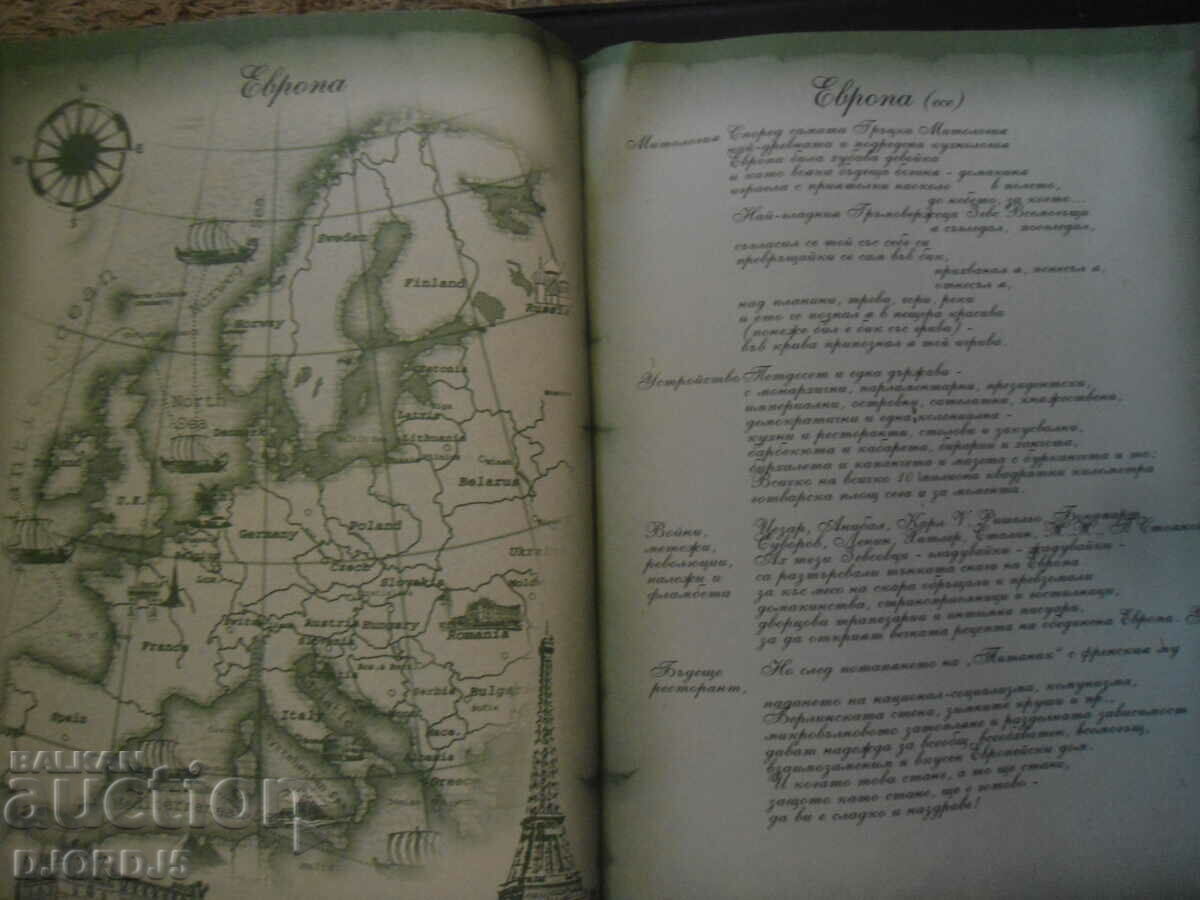 Европа
Sweden
Finland
Norway
Norway
Russia
Estonia
Latvia
Lithuania
North
Sea
Belarus
U.K.
Poland
Germany
Ukrai
Czech
Slovakia
Mold
Lux
France
Austria
Hungary
Romania
Slovenia
Serbia
Bulga
Italy
Spain
Maca.
Albania
Greece
BALKAN
auction
DJORDJ5
Европа (есе)
Митология
Според самата Гръцка Митология
най-древната и подредена кухнология
Европа била хубава девойка
и като всяка бъдеща богиня - домакиня
играела с приятелки наоколо в полето,
до небето, за което...
Най-гладния Гръмовержеца Зевс Всемогъщи
я съгледал, погледал,
съгласил се той със себе си
превръщайки се сам във бик,
прихванал я, понесъл я,
отнесъл я,
над планини, трева, гори, реки
и ето се познал я в пещера красива
(понеже бил е бик със грива) -
във крава припознал я той игрива.
Устройство
Петдесет и една държава -
с монархични, парламентарни, президентски,
империални, островни, сателитни, княжествени,
демократични и една колониална -
кухни и ресторанти, столови и закусвални,
барбекюта и кабарета, бирарии и
бирхалета и капанчета и мазета с бурканчета и то;
Всичко на всичко 10 милиона квадратни километра
готварска площ сега и за момента.
Войни,
метежи,
революции,
палежи и
фламбета
Цезар, Анибал, Карл V, Ришельо, Бонапарт,
Суворов, Ленин, Хитлер, Сталин,
Ах тези Зевсовци - гладувайки - жадувайки -
са разтървали тънката снага на Европа
за къс месо на скара обръщали и превземали
домакинства, страноприемници и гостилници,
дворцови трапезарии и интимни писоари,
за да открият вечната рецепта на обединена Европа -
Бъдеще
ресторант,
Но след потапянето на „Титаник" с френския му
падането на национал-социализма, комунизма,
Берлинската стена, зимните круши и пр...
микровълновото затопляне и раздолната зависимост
дават надежда за всеобщ, всеобхватен, всемогъщ,
взаимозаменим и вкусен Европейски дом.
И когато това стане, а то ще стане,
защото като стане, ще е готово -
да ви е сладко и наздраве!